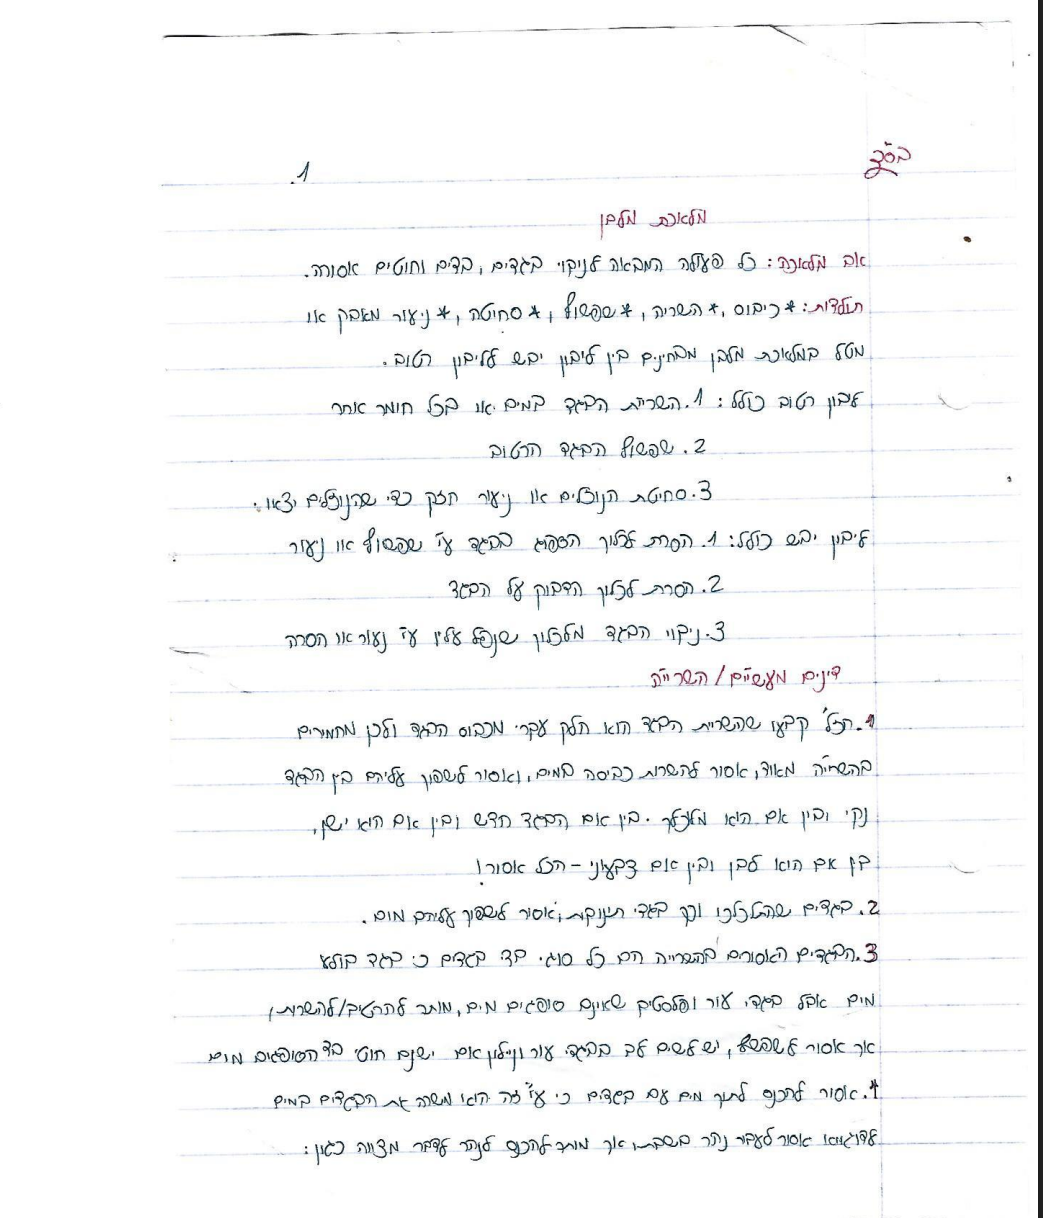 בס"ד
1.
מלאכת מלבן
אב מלאכה: כל פעולה המבאה לניקוי בגדים, בדים וחוטים אסורה.
תולדות: * כיבוס, * השריה, * שפשוף, * סחיטה, * ניעור מאבק או
מטל במלאכת מלבן מבחינים בין ליבון יבש לליבון רטוב.
ליבון רטוב כולל: 1. השריית הבגד במים או בכל חומר אחר
2. שפשוף הבגד הרטוב
3. סחיטת הנוזלים או ניעור חזק כדי שהנוזלים יצאו.
ליבון יבש כולל: 1. הסרת לכלוך הספוג בבגד ע"י שפשוף או ניעור
2. הסרת לכלוך הדבוק על הבגד
3. ניקוי הבגד מלכלוך שנפל עליו ע"י נעור או הסרה
דינים מעשיים / השרייה
1. חכל' קבעו שהשריית הבגד הוא חלק עקרי מכבוס הבגד ולכן מחמירים
בהשרייה מאוד, אסור להשרות כביסה במים, ואסור לשפוך עליהם בין הבגד
נקי ובין אם הוא מלוכלך. בין אם הבגד חדש ובין אם הוא ישן,
בין אם הוא לבן ובין אם צבעוני - הכל אסור!
2. בגדים שהתלכלכו וכך בגדי תינוקות, אסור לשפוך עליהם מים.
3. הבגדים האסורים בהשרייה הם כל סוגי בד בגדים כי בגד בולע
מים אבל בגדי עור ופלסטיק שאינם סופגים מים, מותר להרטיב/להשרות,
אך אסור לשפשף, יש לשים לב בבגדי עור וניילון אם ישנם חוטי בד הסופגים מים
4. אסור להכנס לתוך מים עם בגדים כי ע"י זה הוא משרה את הבגדים במים
לדוגמא אסור לעבור נהר בשבת, אך מותר להכנס לנהר לדבר מצווה כגון: